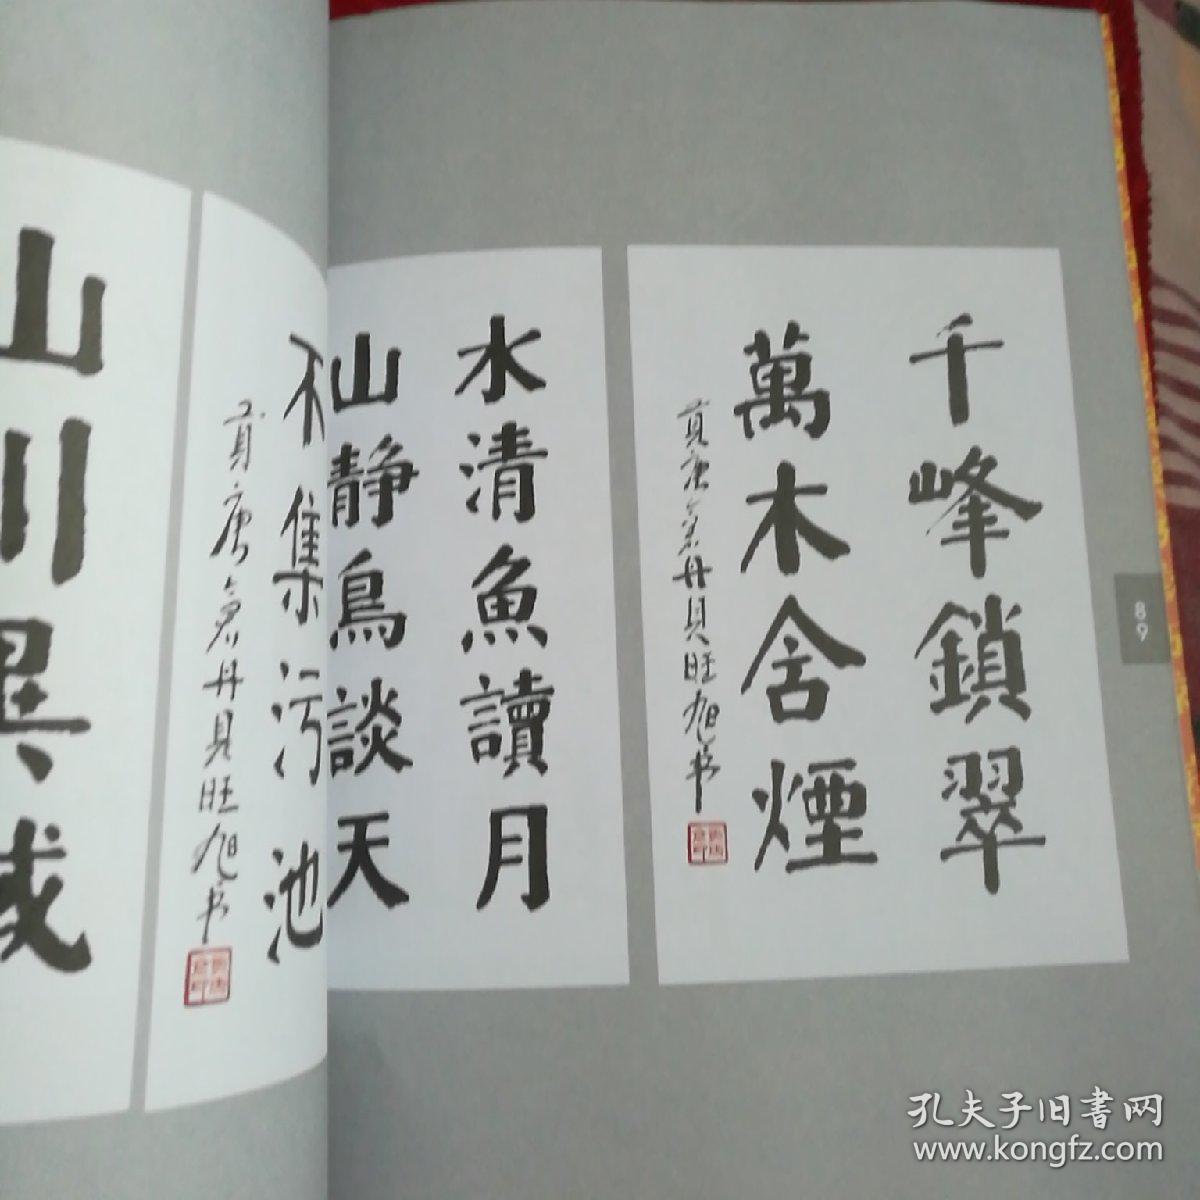 千峰鎖翠
萬木含煙
水清魚讀月
山静鳥談天
集污池
丹貝旺旭书
山川異域
丹貝旺旭书
89
孔夫子旧书网
www.kongfz.com